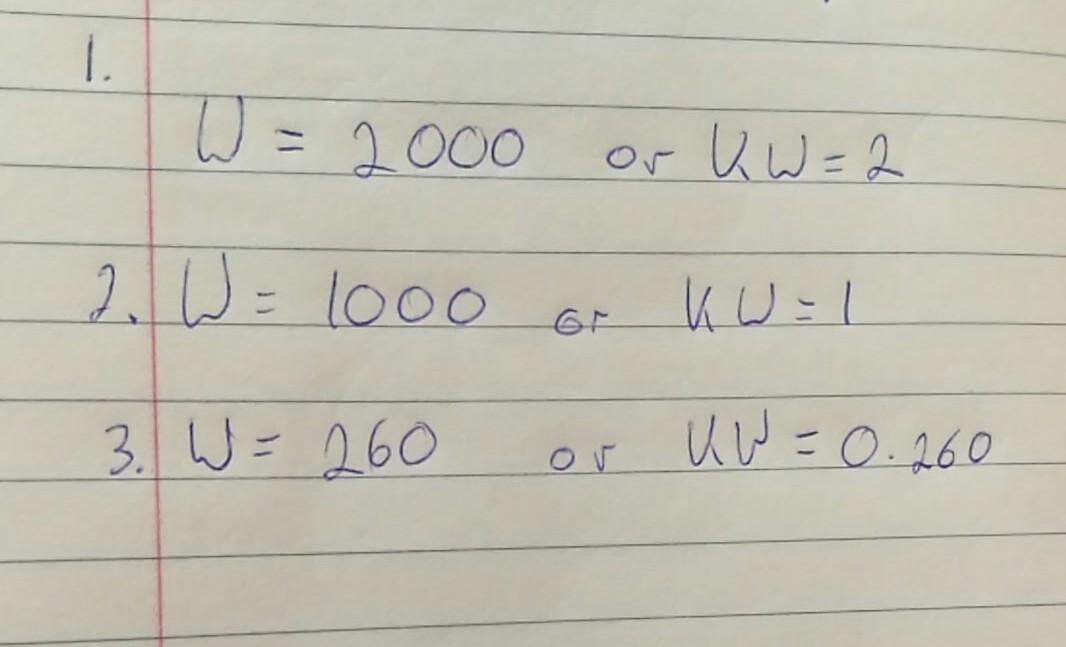 1.
W = 2000 or KW = 2
2. W = 1000 or KW = 1
3. W = 260 or KW = 0.260